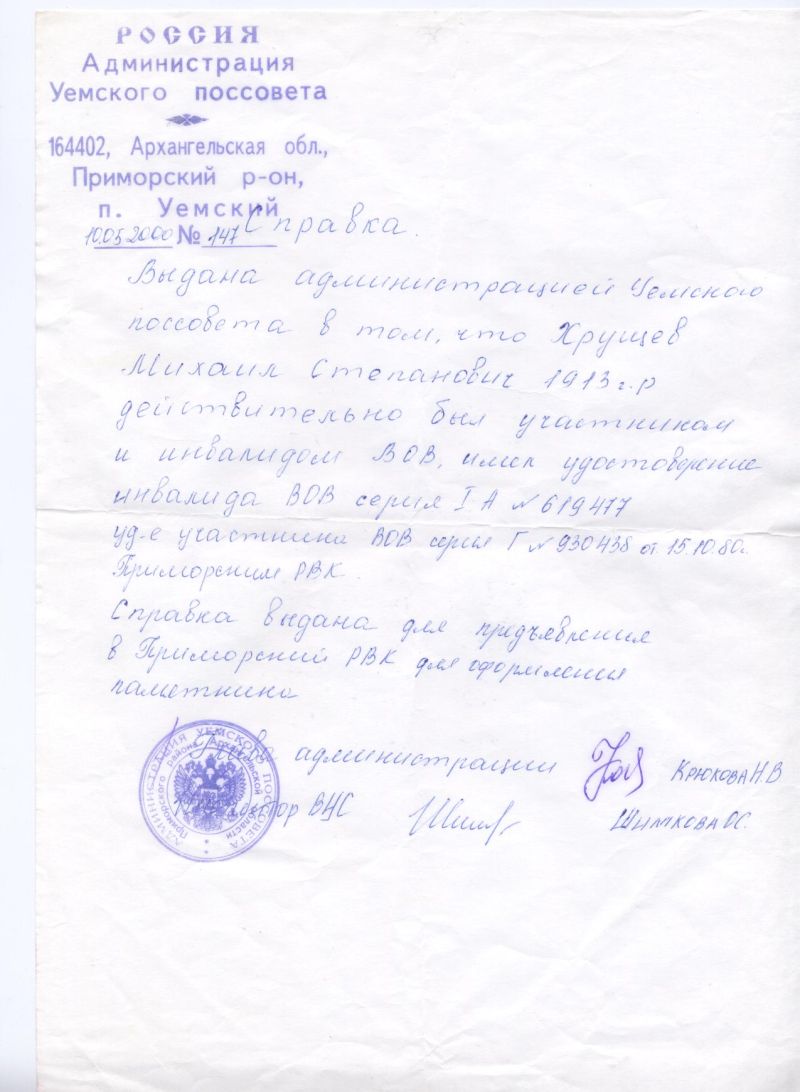 РОССИЯ
Администрация
Уемского поссовета
164402, Архангельская обл.,
Приморский р-он,
п. Уемский
10.05 2000 № 147
Справка.
Выдана администрацией Уемского
поссовета в том, что Хрущев
Михаил Степанович 1913 г.р
действительно был участником
и инвалидом ВОВ, имел удостоверение
инвалида ВОВ серия I А № 619477
уд-е участника ВОВ серия Г № 930438 от 15.10.80г.
Приморским РВК.
Справка выдана для предъявления
в Приморский РВК для оформления
памятника
Глава администрации Крюкова Н.В
ВУС Шиткова О С.
АДМИНИСТРАЦИЯ УЕМСКОГО ПОССОВЕТА
Приморского района Архангельской области